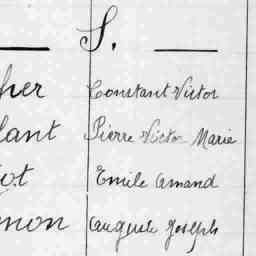 S.
her Constant Victor
lant Pierre Victor Marie
ot Emile Amand
mon Auguste Joseph